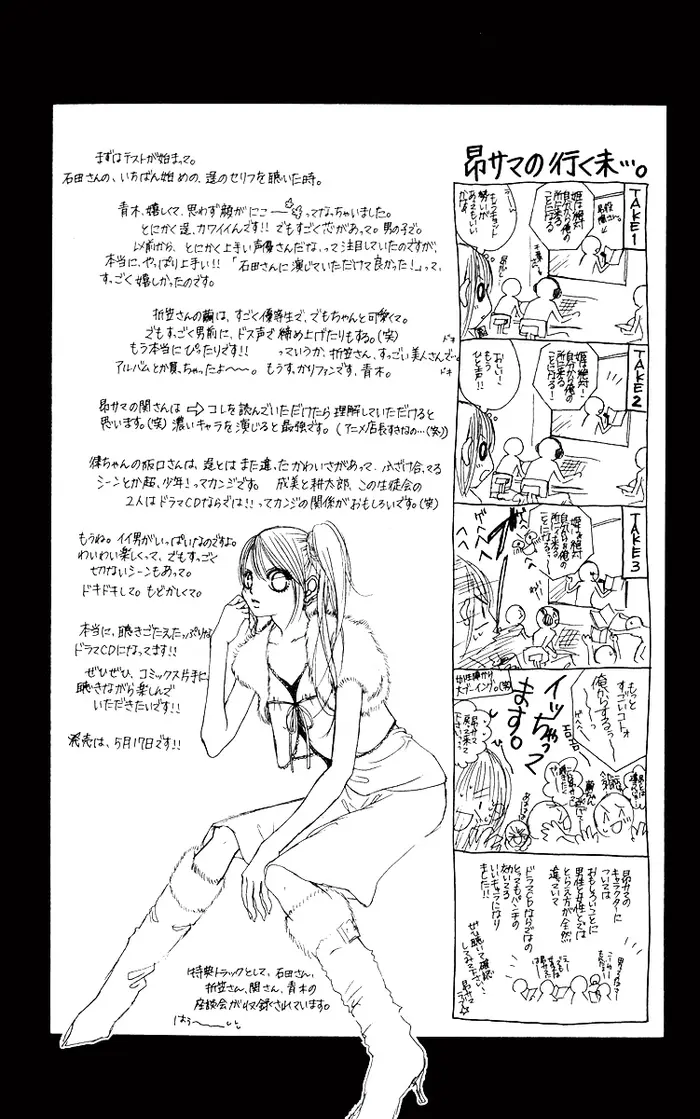 まずはテストが始まって。
石田さんの、いちばん始めの、遥のセリフを聴いた時。
青木、嬉しくて、思わず顔がにこーってなっちゃいました。
とにかく遥、カワイイんです!! でもすごく芯があって。男の子で。
以前から、とにかく上手い声優さんだなって注目していたのですが、
本当に、やっぱり上手い!! 「石田さんに演じていただけて良かった!」って、
すっごく嬉しかったのです。
折笠さんの繭は、すごく優等生で、でもちゃんと可愛くて。
でもすっごく男前に、ドス声で締め上げたりもする。(笑)
もう本当にぴったりです!! っていうか、折笠さん、すっごい美人さんで…
ドキ
ドキ
アルバムとか買っちゃったよ〜〜。もうすっかりファンです、青木。
昂サマの関さんは ⇨ コレを読んでいただけたら理解していただけると
思います。(笑) 濃いキャラを演じると最強です。(アニメ店長すきなの…(笑))
阪口さんは、遥とはまた違ったかわいさがあって ふざけ合ってる
シーンとか超、少年!ってカンジです。 成美と耕太郎、この生徒会の
2人はドラマCDならでは!!ってカンジの関係がおもしろいです。(笑)
もうね。イイ男がいっぱいなのですよ。
わいわい楽しくって、でもすっごく
切ないシーンもあって。
ドキドキして。もどかしくて。
本当に、聴きごたえたっぷりな
ドラマCDになってます!!
ぜひぜひ、コミックス片手に
聴きながら楽しんで
いただきたいです!!
発売は、5月17日です!!
特典トラックとして、石田さん、
折笠さん、関さん、青木の
座談会が収録されています。
はぅ〜〜
昂サマの行く末…。
TAKE1
姫は絶対
自分から俺の
所に来る
ことになる
うーん
もうちょっと
勢いが
あってもいい
かな
TAKE2
姫は絶対!
自分から俺の
所に来る
ことになる!
おしい!
もう
ひと声!!
TAKE3
姫は絶対
自分から俺の
所に来る
ことになる
もっと
すっごいコトォ
俺からするぅ〜
イッちゃって
ます。
女性陣から
大ブーイング。(笑)
昂サマ
戻って来て
下さい
昂サマの
キャラクターに
ついては
おもしろいことに
男性と女性とでは
とらえ方が全然
違っていて
ドラマCDならではの
とってもパンチの
効いてる
いいキャラになり
ました!!
ぜひ聴いて確認
してみて下さい!